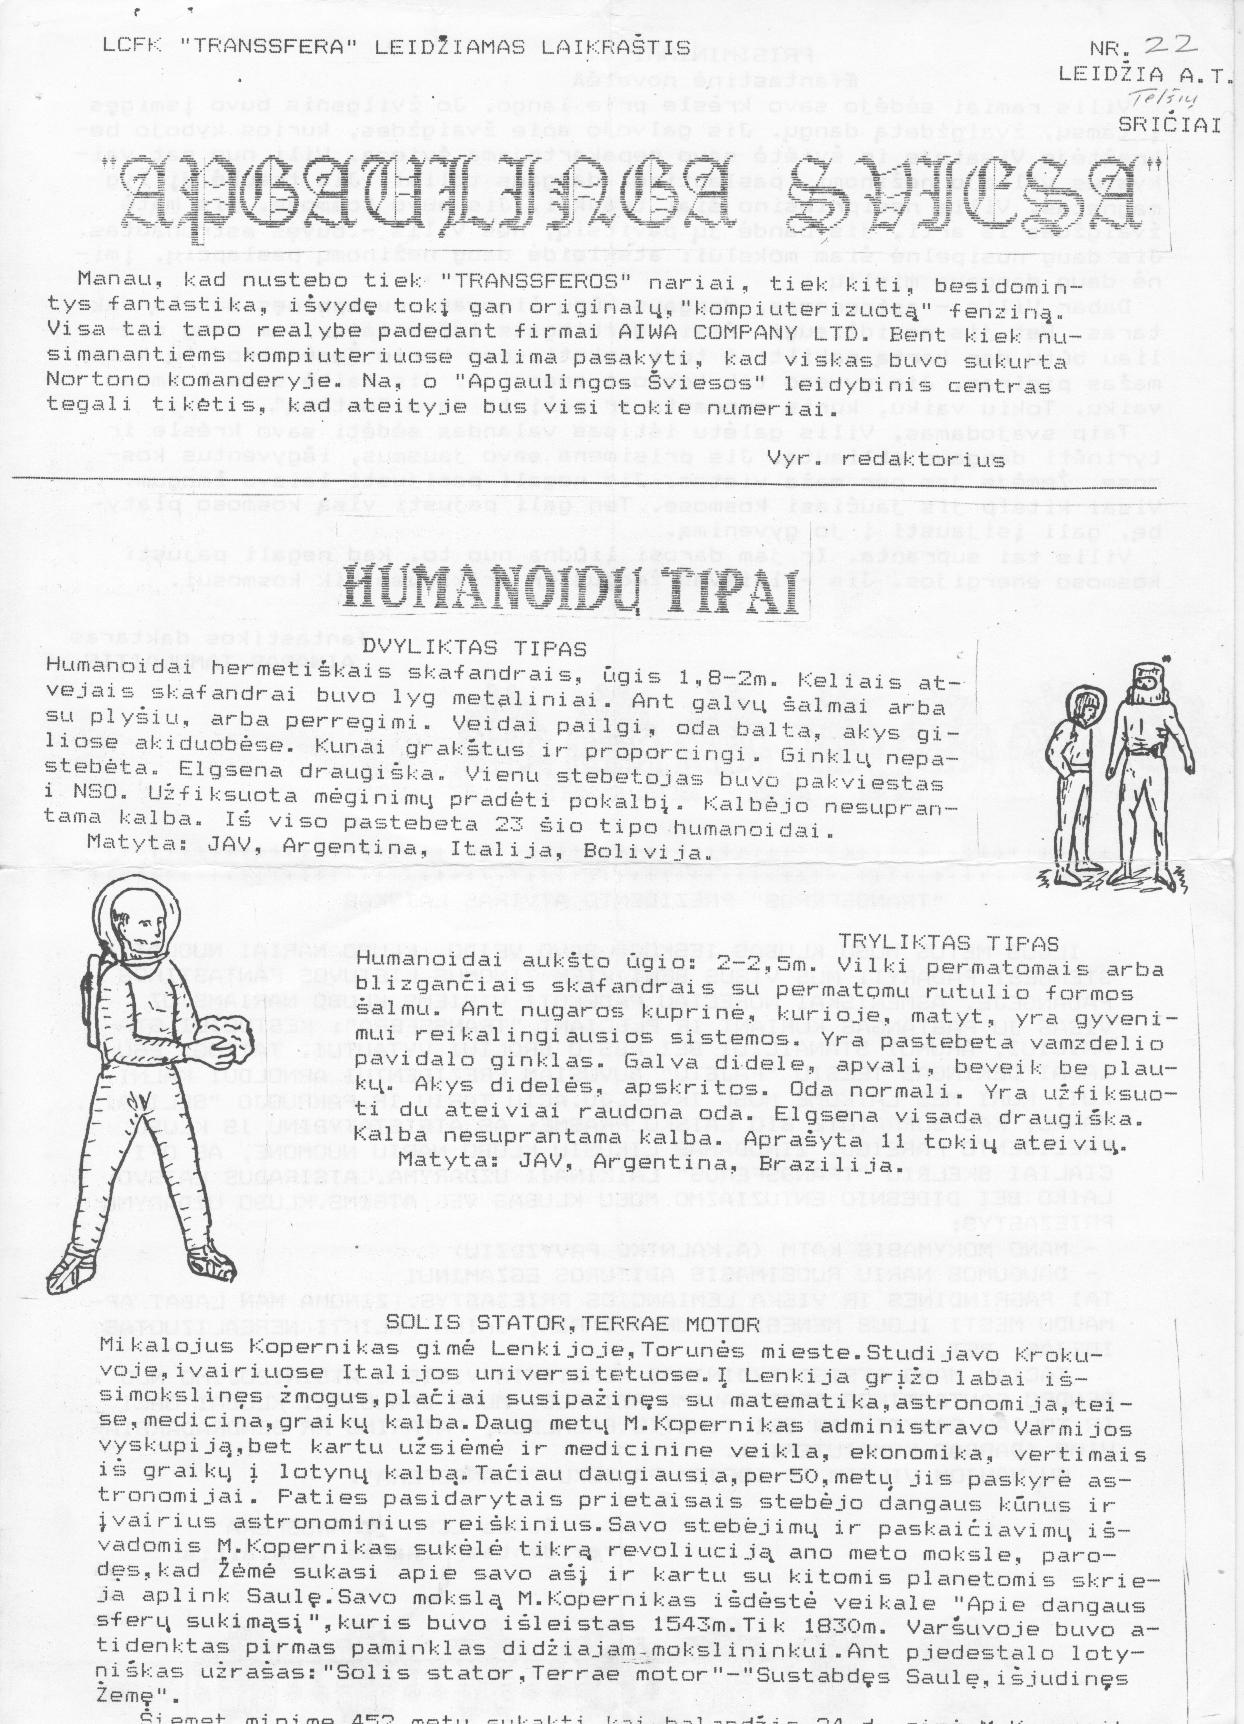 LCFK "TRANSSFERA" LEIDŽIAMAS LAIKRAŠTIS
NR. 22
LEIDŽIA A.T.
Telšių
SRIČIAI
"APGAULINGA SVIESA"
Manau, kad nustebo tiek "TRANSSFEROS" nariai, tiek kiti, besidomin-
tys fantastika, išvydę tokį gan originalų,"kompiuterizuotą" fenziną.
Visa tai tapo realybe padedant firmai AIWA COMPANY LTD. Bent kiek nu-
simanantiems kompiuteriuose galima pasakyti, kad viskas buvo sukurta
Nortono komanderyje. Na, o "Apgaulingos Šviesos" leidybinis centras
tegali tikėtis, kad ateityje bus visi tokie numeriai.
Vyr. redaktorius
HUMANOIDŲ TIPAI
DVYLIKTAS TIPAS
Humanoidai hermetiškais skafandrais, ūgis 1,8-2m. Keliais at-
vejais skafandrai buvo lyg metaliniai. Ant galvų šalmai arba
su plyšiu, arba perregimi. Veidai pailgi, oda balta, akys gi-
liose akiduobėse. Kunai grakštus ir proporcingi. Ginklų nepa-
stebėta. Elgsena draugiška. Vienu stebetojas buvo pakviestas
i NSO. Užfiksuota mėginimų pradėti pokalbį. Kalbėjo nesupran-
tama kalba. Iš viso pastebeta 23 šio tipo humanoidai.
Matyta: JAV, Argentina, Italija, Bolivija.
TRYLIKTAS TIPAS
Humanoidai aukšto ūgio: 2-2,5m. Vilki permatomais arba
blizgančiais skafandrais su permatomu rutulio formos
šalmu. Ant nugaros kuprinė, kurioje, matyt, yra gyveni-
mui reikalingiausios sistemos. Yra pastebeta vamzdelio
pavidalo ginklas. Galva didelė, apvali, beveik be plau-
kų. Akys didelės, apskritos. Oda normali. Yra užfiksuo-
ti du ateiviai raudona oda. Elgsena visada draugiška.
Kalba nesuprantama kalba. Aprašyta 11 tokių ateivių.
Matyta: JAV, Argentina, Brazilija.
SOLIS STATOR,TERRAE MOTOR
Mikalojus Kopernikas gimė Lenkijoje,Torunės mieste.Studijavo Kroku-
voje,ivairiuose Italijos universitetuose.Į Lenkija grįžo labai iš-
simokslinęs žmogus,plačiai susipažinęs su matematika,astronomija,tei-
se,medicina,graikų kalba.Daug metų M.Kopernikas administravo Varmijos
vyskupiją,bet kartu užsiėmė ir medicinine veikla, ekonomika, vertimais
iš graikų į lotynų kalbą.Tačiau daugiausia,per50,metų jis paskyrė as-
tronomijai. Paties pasidarytais prietaisais stebėjo dangaus kūnus ir
įvairius astronominius reiškinius.Savo stebėjimų ir paskaičiavimų iš-
vadomis M.Kopernikas sukėlė tikrą revoliuciją ano meto moksle, paro-
dęs,kad Žėmė sukasi apie savo ašį ir kartu su kitomis planetomis skrie-
ja aplink Saulę.Savo mokslą M.Kopernikas išdėstė veikale "Apie dangaus
sferų sukimąsį",kuris buvo išleistas 1543m.Tik 1830m. Varšuvoje buvo a-
tidenktas pirmas paminklas didžiajam mokslininkui.Ant pjedestalo loty-
niškas užrašas:"Solis stator,Terrae motor"-"Sustabdęs Saulę,išjudinęs
Žemę".
Šiemet minime 452 metų sukaktį kai balandžio 24 d.